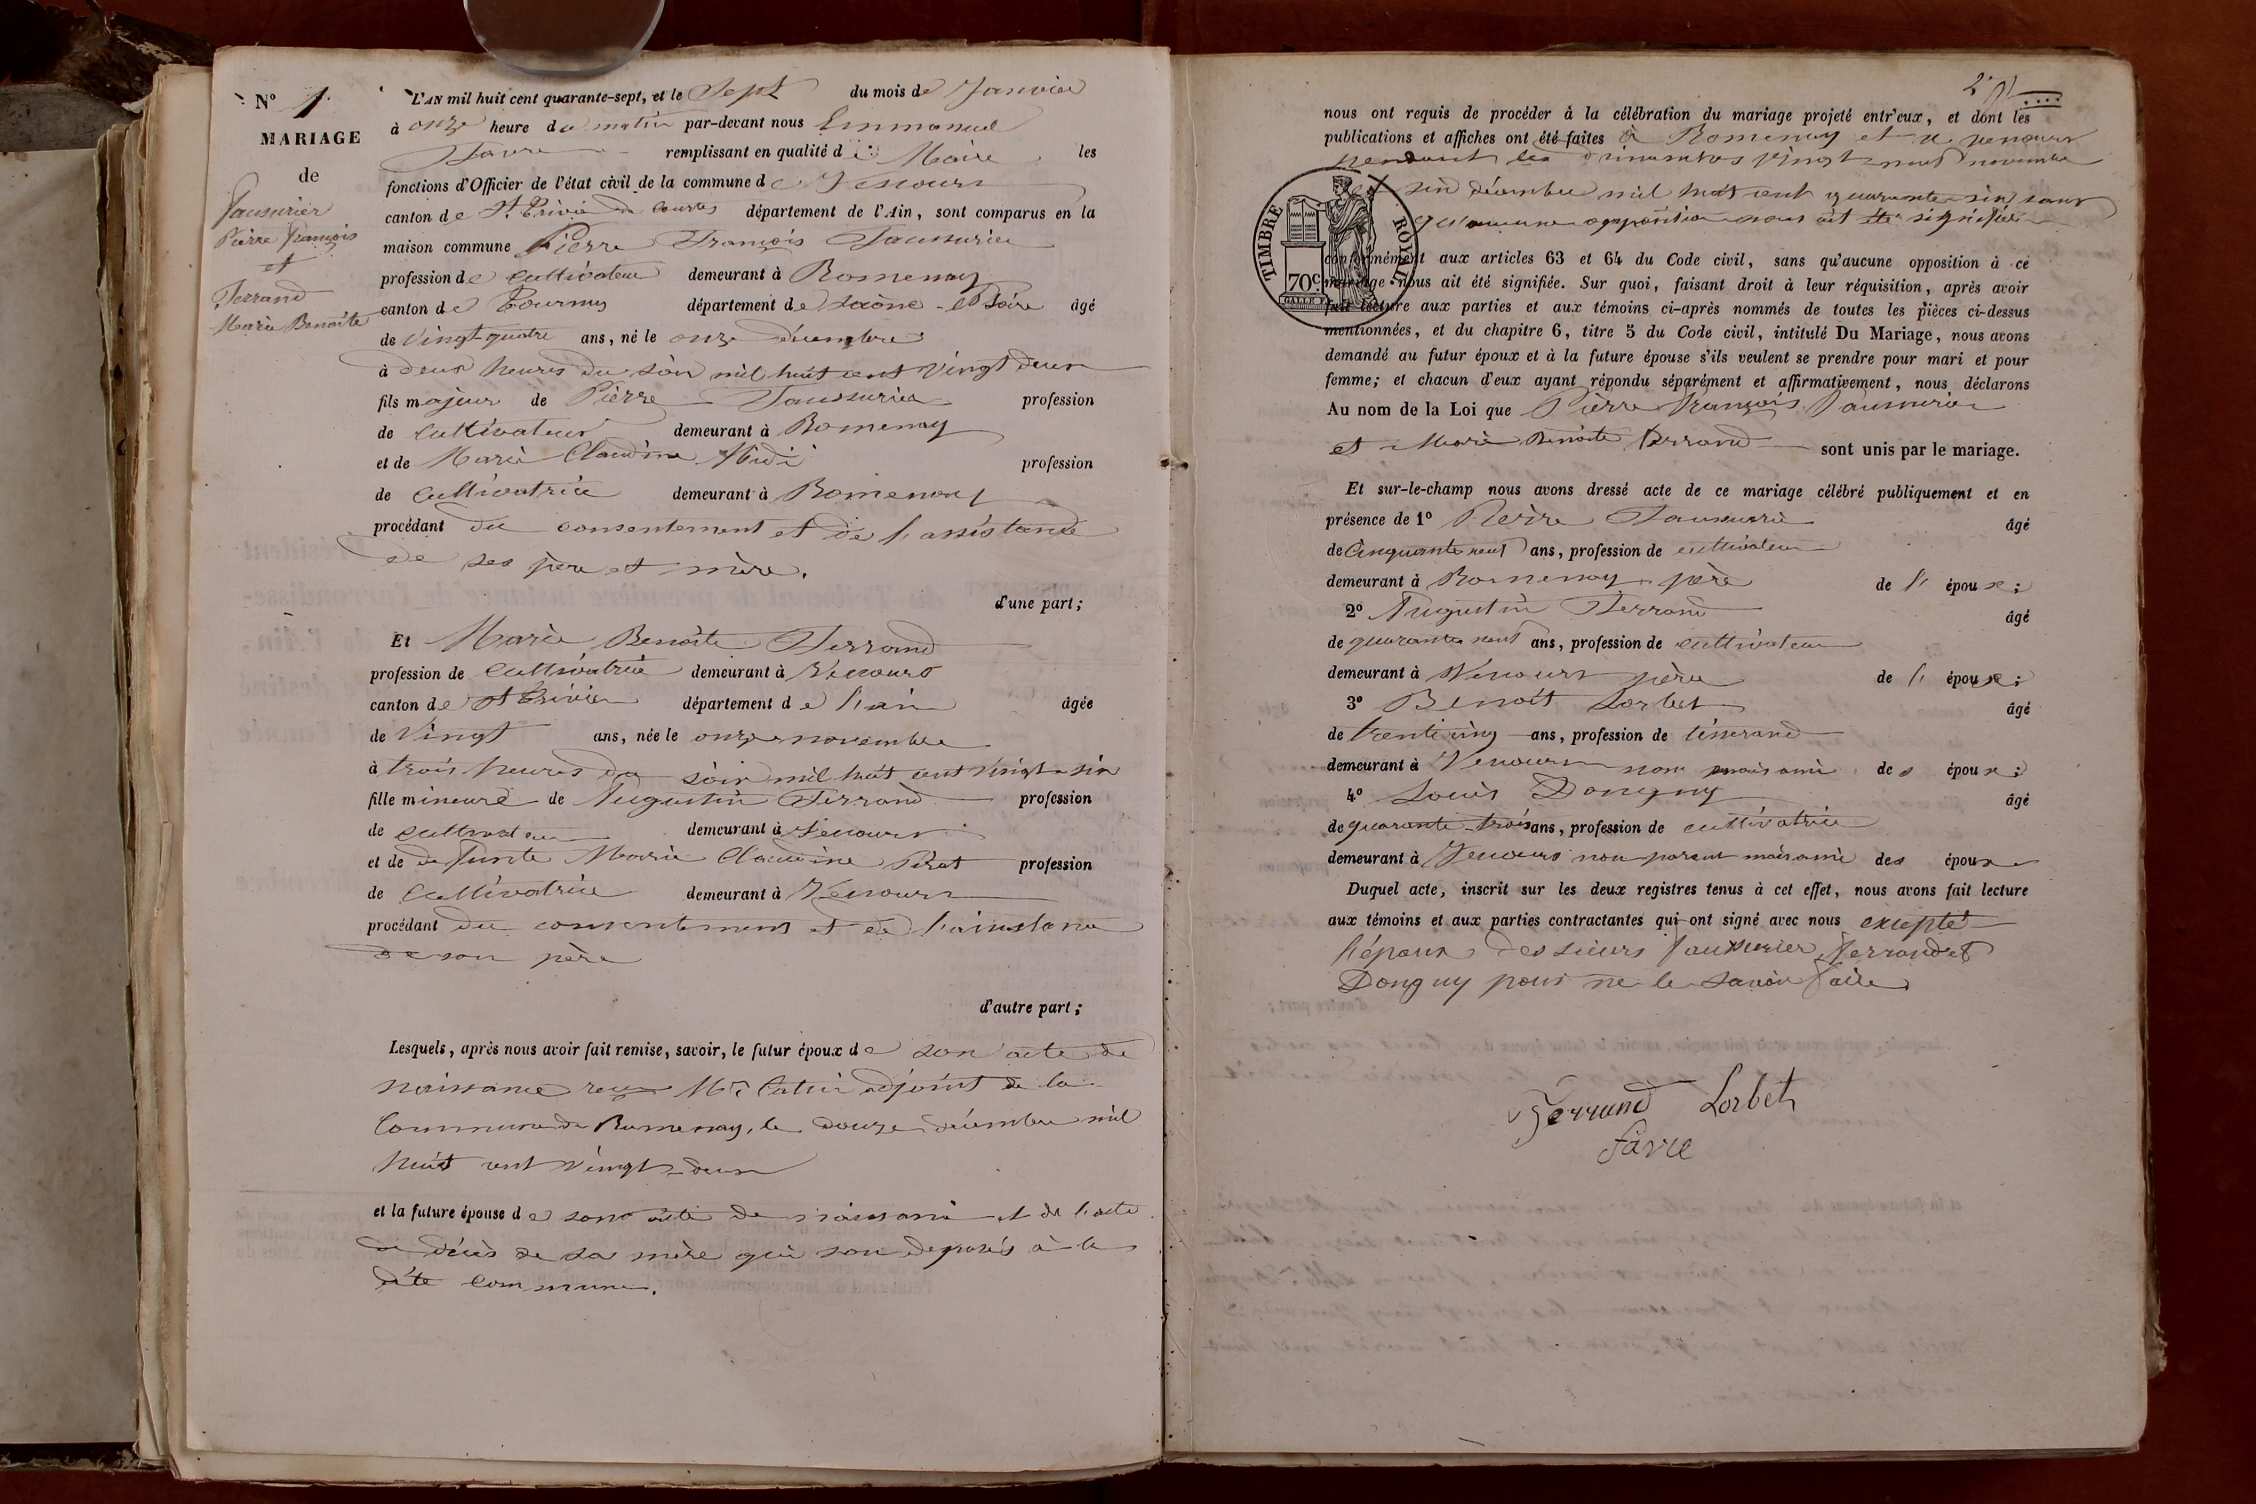 N° 1.
MARIAGE
de
Faussurier
Pierre François
et
Ferrand
Marie Benoîte
L'AN mil huit cent quarante-sept, et le Sept du mois de Janvier
à onze heure du matin par-devant nous Emmanuel
Favre remplissant en qualité de Maire les
fonctions d'Officier de l'état civil de la commune de Vescours
canton de St Trivier de Courtes département de l'Ain, sont comparus en la
maison commune Pierre François Faussurier
profession de cultivateur demeurant à Romenay
canton de Tournus département de Saône et Loire âgé
de vingt quatre ans, né le onze décembre
à deux heures du soir mil huit cent vingt deux
fils majeur de Pierre Faussurier profession
de cultivateur demeurant à Romenay
et de Marie Claudine profession
de cultivatrice demeurant à Romenay
procédant du consentement et de l'assistance
de ses père et mère.
d'une part;
Et Marie Benoîte Ferrand
profession de cultivatrice demeurant à Vescours
canton de St Trivier département de l'ain âgée
de vingt ans, née le onze novembre
à trois heures du soir mil huit cent vingt six
fille mineure de Augustin Ferrand profession
de cultivateur demeurant à Vescours
et de defunte Marie Claudine Perat profession
de cultivatrice demeurant à Vescours
procédant du consentement et de l'assistance
de son père
d'autre part;
Lesquels, après nous avoir fait remise, savoir, le futur époux de son acte de
naissance reçu Mr adjoint de la
Commune de Romenay, le douze décembre mil
huit cent vingt deux
et la future épouse de son acte de naissance et de l'acte
de décès de sa mère qui son deposés à la
dite commune.
nous ont requis de procéder à la célébration du mariage projeté entr'eux, et dont les
publications et affiches ont été faites à Romenay et à Vescours
pendant les dimanches vingt neuf novembre
et six décembre mil huit cent quarante six sans
qu'aucune opposition nous ait été signifiée
TIMBRE ROYAL
70c
conformément aux articles 63 et 64 du Code civil, sans qu'aucune opposition à ce
mariage nous ait été signifiée. Sur quoi, faisant droit à leur réquisition, après avoir
fait lecture aux parties et aux témoins ci-après nommés de toutes les pièces ci-dessus
mentionnées, et du chapitre 6, titre 5 du Code civil, intitulé Du Mariage, nous avons
demandé au futur époux et à la future épouse s'ils veulent se prendre pour mari et pour
femme; et chacun d'eux ayant répondu séparément et affirmativement, nous déclarons
Au nom de la Loi que Pierre François Faussurier
et Marie Benoîte Ferrand sont unis par le mariage.
Et sur-le-champ nous avons dressé acte de ce mariage célébré publiquement et en
présence de 1° Pierre Faussurier âgé
de cinquante neuf ans, profession de cultivateur
demeurant à Romenay père de l' époux;
2° Augustin Ferrand âgé
de quarante neuf ans, profession de cultivateur
demeurant à Vescours père de l' épouse;
3° Benoît Lorbet âgé
de trente cinq ans, profession de tisserand
demeurant à Vescours non mais ami des époux;
4° Louis Donguy âgé
de quarante trois ans, profession de cultivatrice
demeurant à Vescours non parent mais ami des époux
Duquel acte, inscrit sur les deux registres tenus à cet effet, nous avons fait lecture
aux témoins et aux parties contractantes qui ont signé avec nous excepté
l'époux des sieurs Faussurier Ferrand et
Donguy pour ne le savoir faire.
Ferrand Lorbet
favre